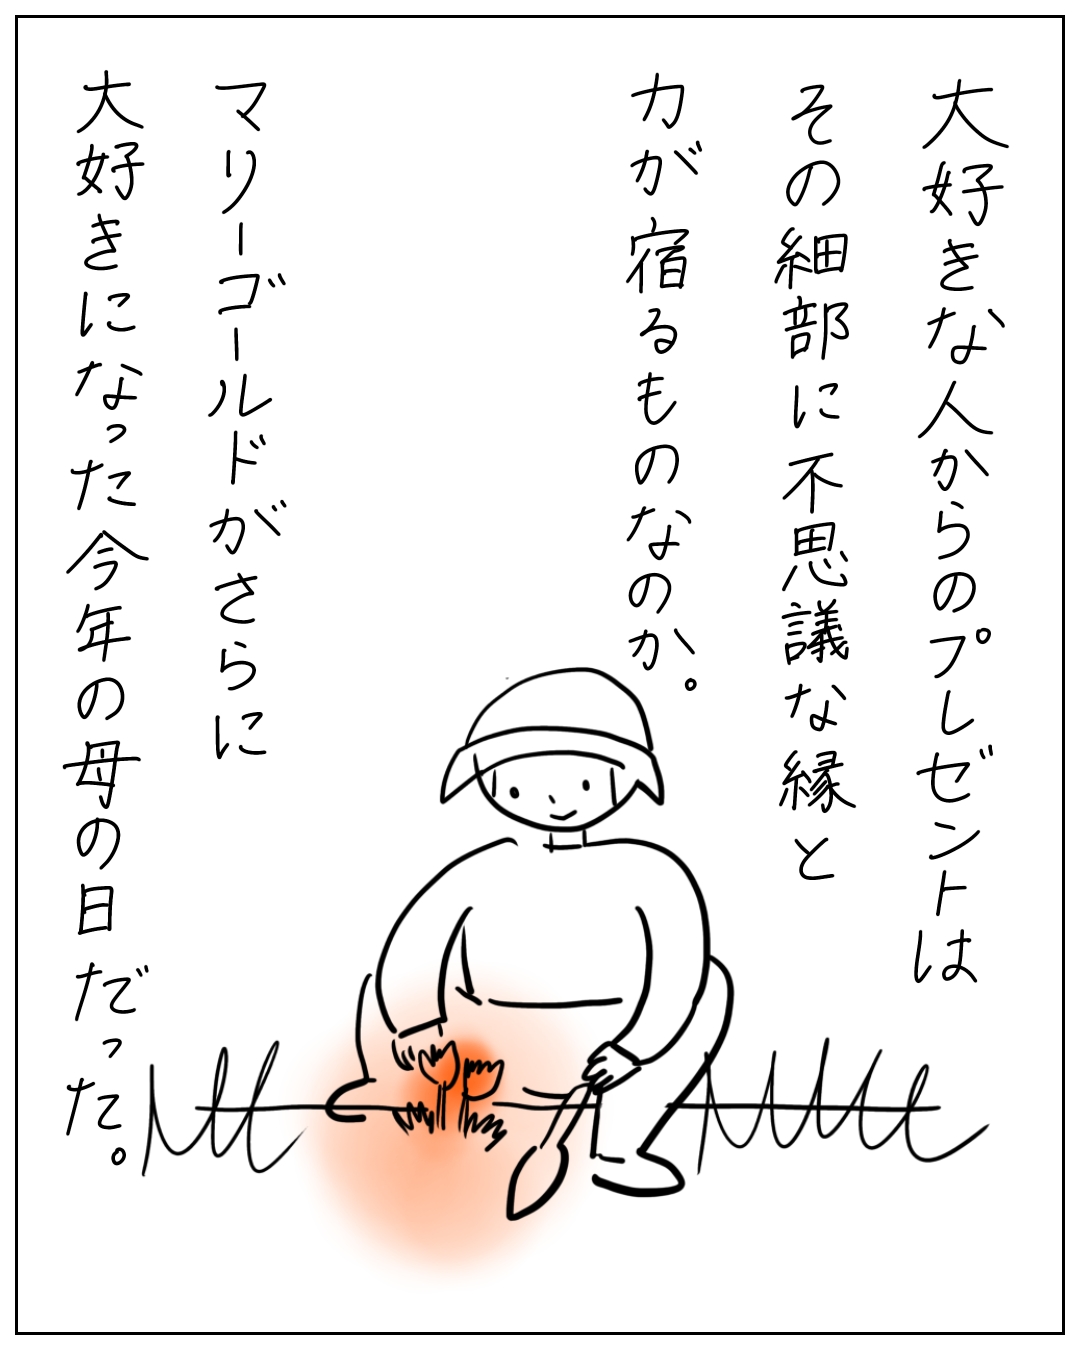 大好きな人からのプレゼントは
その細部に不思議な縁と
力が宿るものなのか。
マリーゴールドがさらに
大好きになった今年の母の日だった。